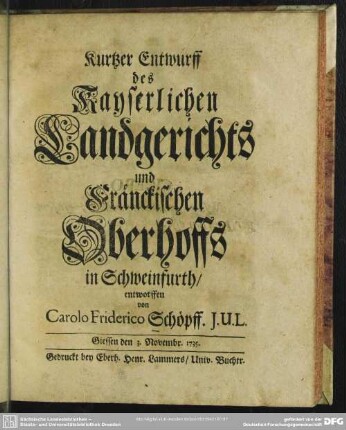 Kurtzer Entwurff
des
Kayserlichen
Landgerichts
und
Fränckischen
Oberhoffs
in Schweinfurth/
entworffen
von
Carolo Friderico Schöpff. J.U.L.
Giessen den 3. Novembr. 1735.
Gedruckt bey Eberh. Henr. Lammers/ Univ. Buchtr.
Sächsische Landesbibliothek –
Staats- und Universitätsbibliothek Dresden
gefördert von der
Deutschen Forschungsgemeinschaft
DFG